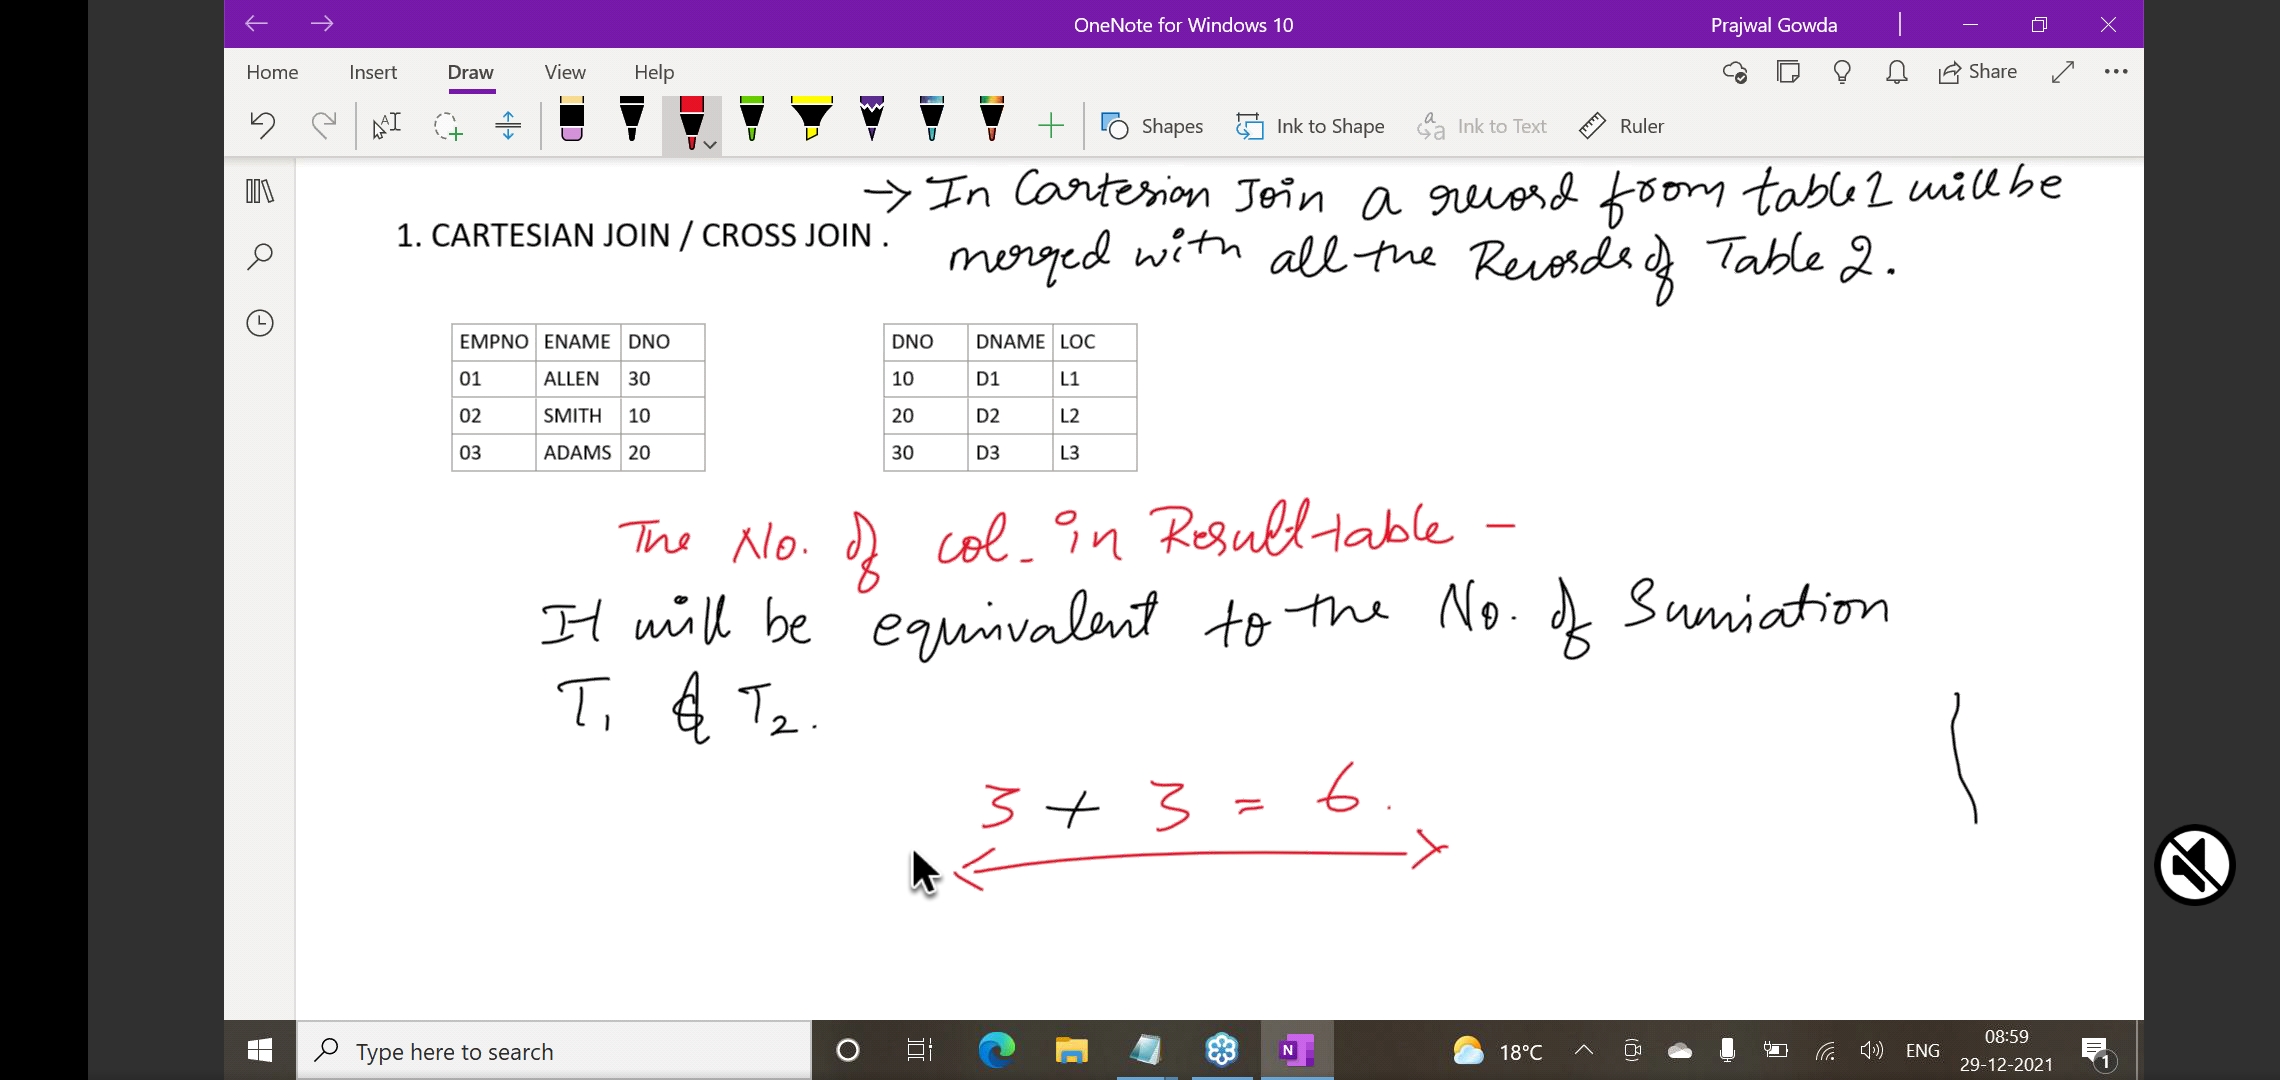 OneNote for Windows 10
Prajwal Gowda
Home Insert Draw View Help
Share
Shapes Ink to Shape Ink to Text Ruler
→ In Cartesian Join a record from table 1 will be
1. CARTESIAN JOIN / CROSS JOIN .
merged with all the Records of Table 2.
EMPNO ENAME DNO
01 ALLEN 30
02 SMITH 10
03 ADAMS 20
DNO DNAME LOC
10 D1 L1
20 D2 L2
30 D3 L3
The No. of col. in Result table -
It will be equivalent to the No. of Sumiation
T1 & T2.
3 + 3 = 6.
Type here to search
N
18°C
ENG
08:59
29-12-2021
1